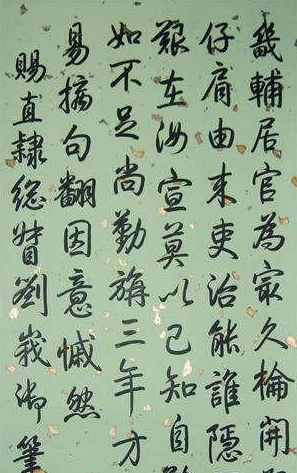 畿輔居官為家久掄開
仔肩由来吏治能誰隱
艱在宣莫以已知自
如不足尚勤旃三年方
易摛句翻因意慽然
賜直隸總督劉峩御筆